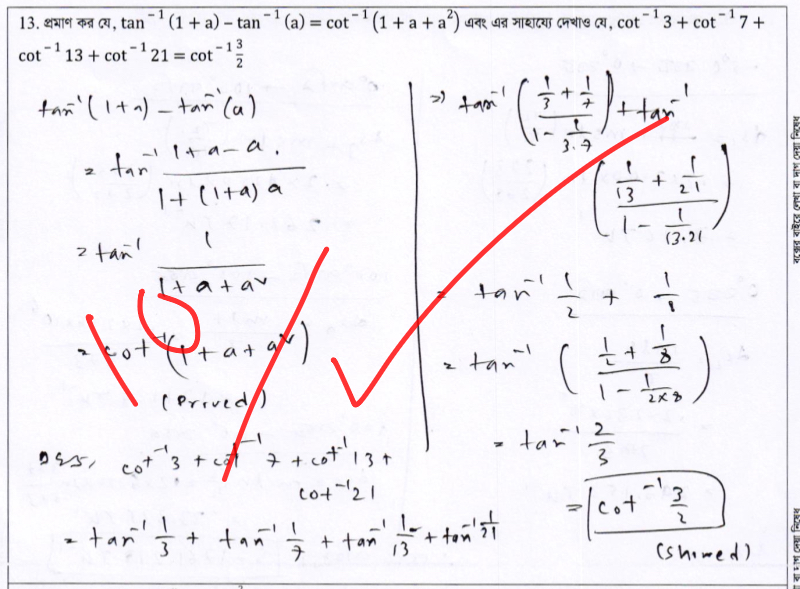 13. প্রমাণ কর যে, tan⁻¹(1 + a) – tan⁻¹(a) = cot⁻¹(1 + a + a²) এবং এর সাহায্যে দেখাও যে, cot⁻¹ 3 + cot⁻¹ 7 +
cot⁻¹ 13 + cot⁻¹ 21 = cot⁻¹ 3/2
tan⁻¹(1+a) – tan⁻¹(a)
= tan⁻¹ (1+a-a)/(1+(1+a)a)
= tan⁻¹ 1/(1+a+a²)
= cot⁻¹(1+a+a²)
(Prived)
cot⁻¹3 + cot⁻¹7 + cot⁻¹13 +
cot⁻¹21
= tan⁻¹ 1/3 + tan⁻¹ 1/7 + tan⁻¹ 1/13 + tan⁻¹ 1/21
⇒ tan⁻¹ ((1/3 + 1/7)/(1 - 1/3.7)) + tan⁻¹
((1/13 + 1/21)/(1 - 1/13.21))
= tan⁻¹ 1/2 + 1/8
= tan⁻¹ ((1/2 + 1/8)/(1 - 1/2×8))
= tan⁻¹ 2/3
= cot⁻¹ 3/2
(Showed)